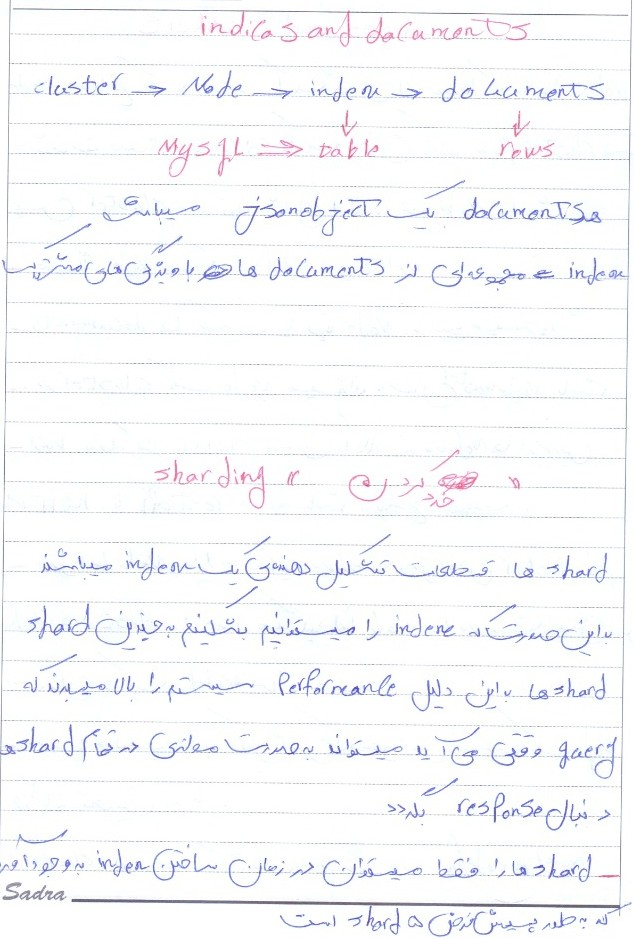 indices and documents
cluster → Node → index → documents
↓ ↓
Mysql ⇒ table rows
documentsها یک jsonobject میباشد
index = مجموعه‌ای از documents ها با ویژگی های مشترک
sharding « خرد کردن »
shard ها قطعات تشکیل دهنده‌ی یک index میباشند
به این صورت که index را میتوانیم بشکنیم به چندین shard
shard ها به این دلیل Performance سیستم را بالا میبرند که
query وقتی می آید میتواند به صورت موازی در تمام shard ها
دنبال response بگردد
_ shard ها را فقط میتوان در زمان ساختن index به وجود آورد
که به طور پیش فرض ۵ shard است
Sadra